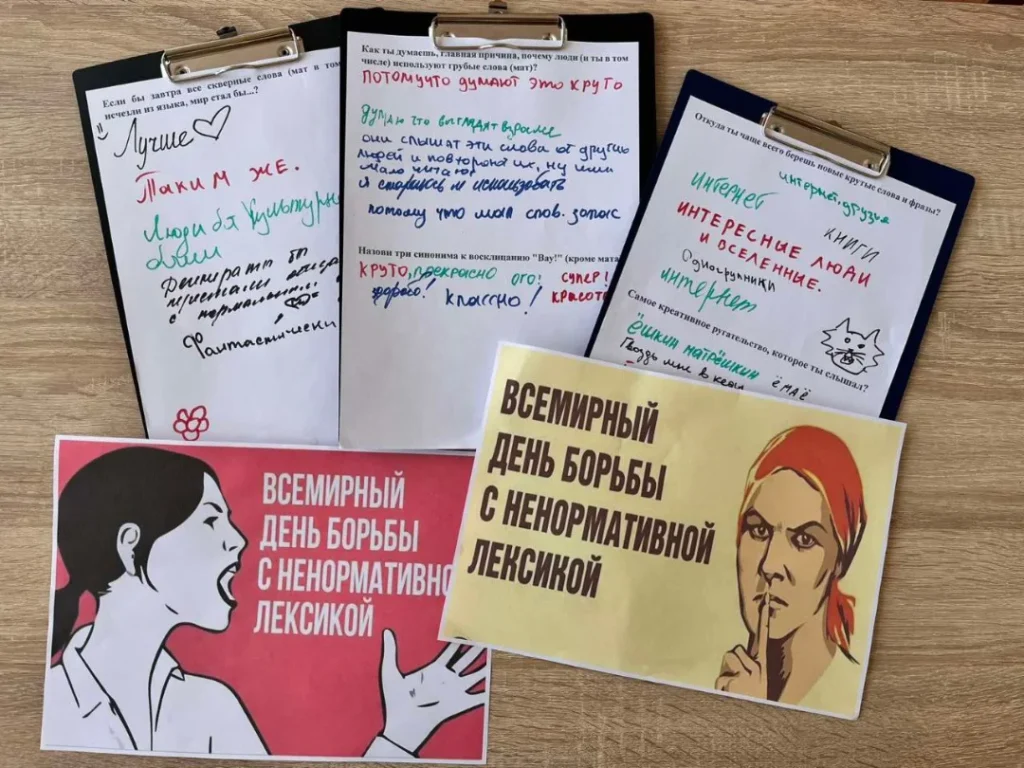 Если бы завтра все скверные слова (мат в том
исчезли из языка, мир стал бы...?
Лучше
Таким же.
Люди бы культурн
были
перестали
с нормальными
Фантастически
Как ты думаешь, главная причина, почему люди (и ты в том
числе) используют грубые слова (мат)?
ПОТОМУЧТО ДУМАЮТ ЭТО КРУТО
думаю что выглядят взрослее
они слышат эти слова от других
людей и повторяют их, ну или
мало читают
я стараюсь не использовать
потому что мал слов. запас
Назови три синонима к восклицанию "Вау!" (кроме мата
КРУТО, прекрасно ого! СУПЕР!
здорово! КЛАССНО! КРАСОТ
Откуда ты чаще всего берешь новые крутые слова и фразы?
интернет, друзья
интернет
КНИГИ
ИНТЕРЕСНЫЕ ЛЮДИ
И ВСЕЛЕННЫЕ.
Однокурпники
интернет
Самое креативное ругательство, которое ты слышал?
ёшкин матрёшкин
Гвоздь мне в кеды
ёмаё
ВСЕМИРНЫЙ
ДЕНЬ БОРЬБЫ
С НЕНОРМАТИВНО
ЛЕКСИКОЙ
ВСЕМИРНЫЙ
ДЕНЬ БОРЬБЫ
С НЕНОРМАТИВНОЙ
ЛЕКСИКОЙ